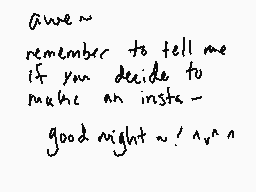 awe~
remember to tell me
if you decide to
make an insta-
good night ~! ^v^ ^